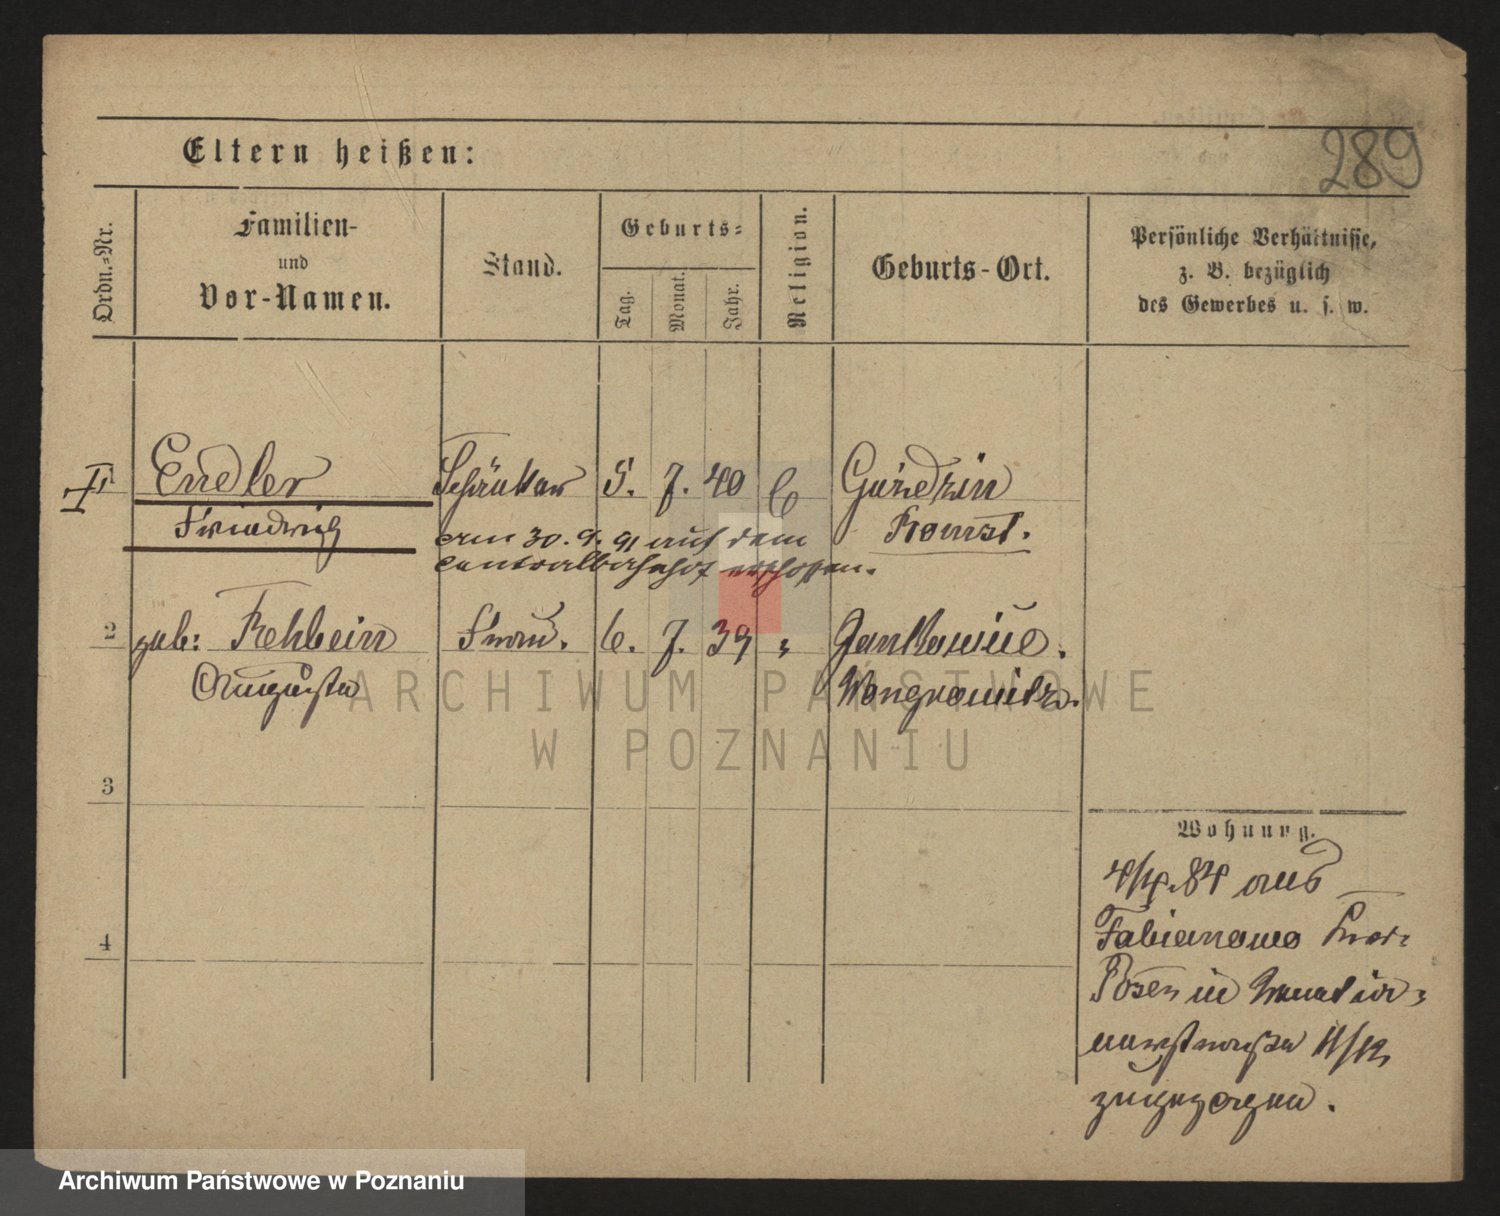 289
Eltern heißen:
Ordn.-Nr.
Familien-
und
Vor-Namen.
Stand.
Geburts-
Tag.
Monat.
Jahr.
Religion.
Geburts-Ort.
Persönliche Verhältnisse,
z. B. bezüglich
des Gewerbes u. s. w.
Endler 5. 7. 40
Friedrich
am 30. 9. 91 auf dem
Centralbahnhof erschossen.
2 geb: Rehbein Frau. 6. 7. 39 "
Augusta
Wongrowitz.
3
4
Wohnung.
4/4. 84 aus
Fabianowo
Posen in
11/12
zugezogen.
ARCHIWUM PAŃSTWOWE
W POZNANIU
Archiwum Państwowe w Poznaniu